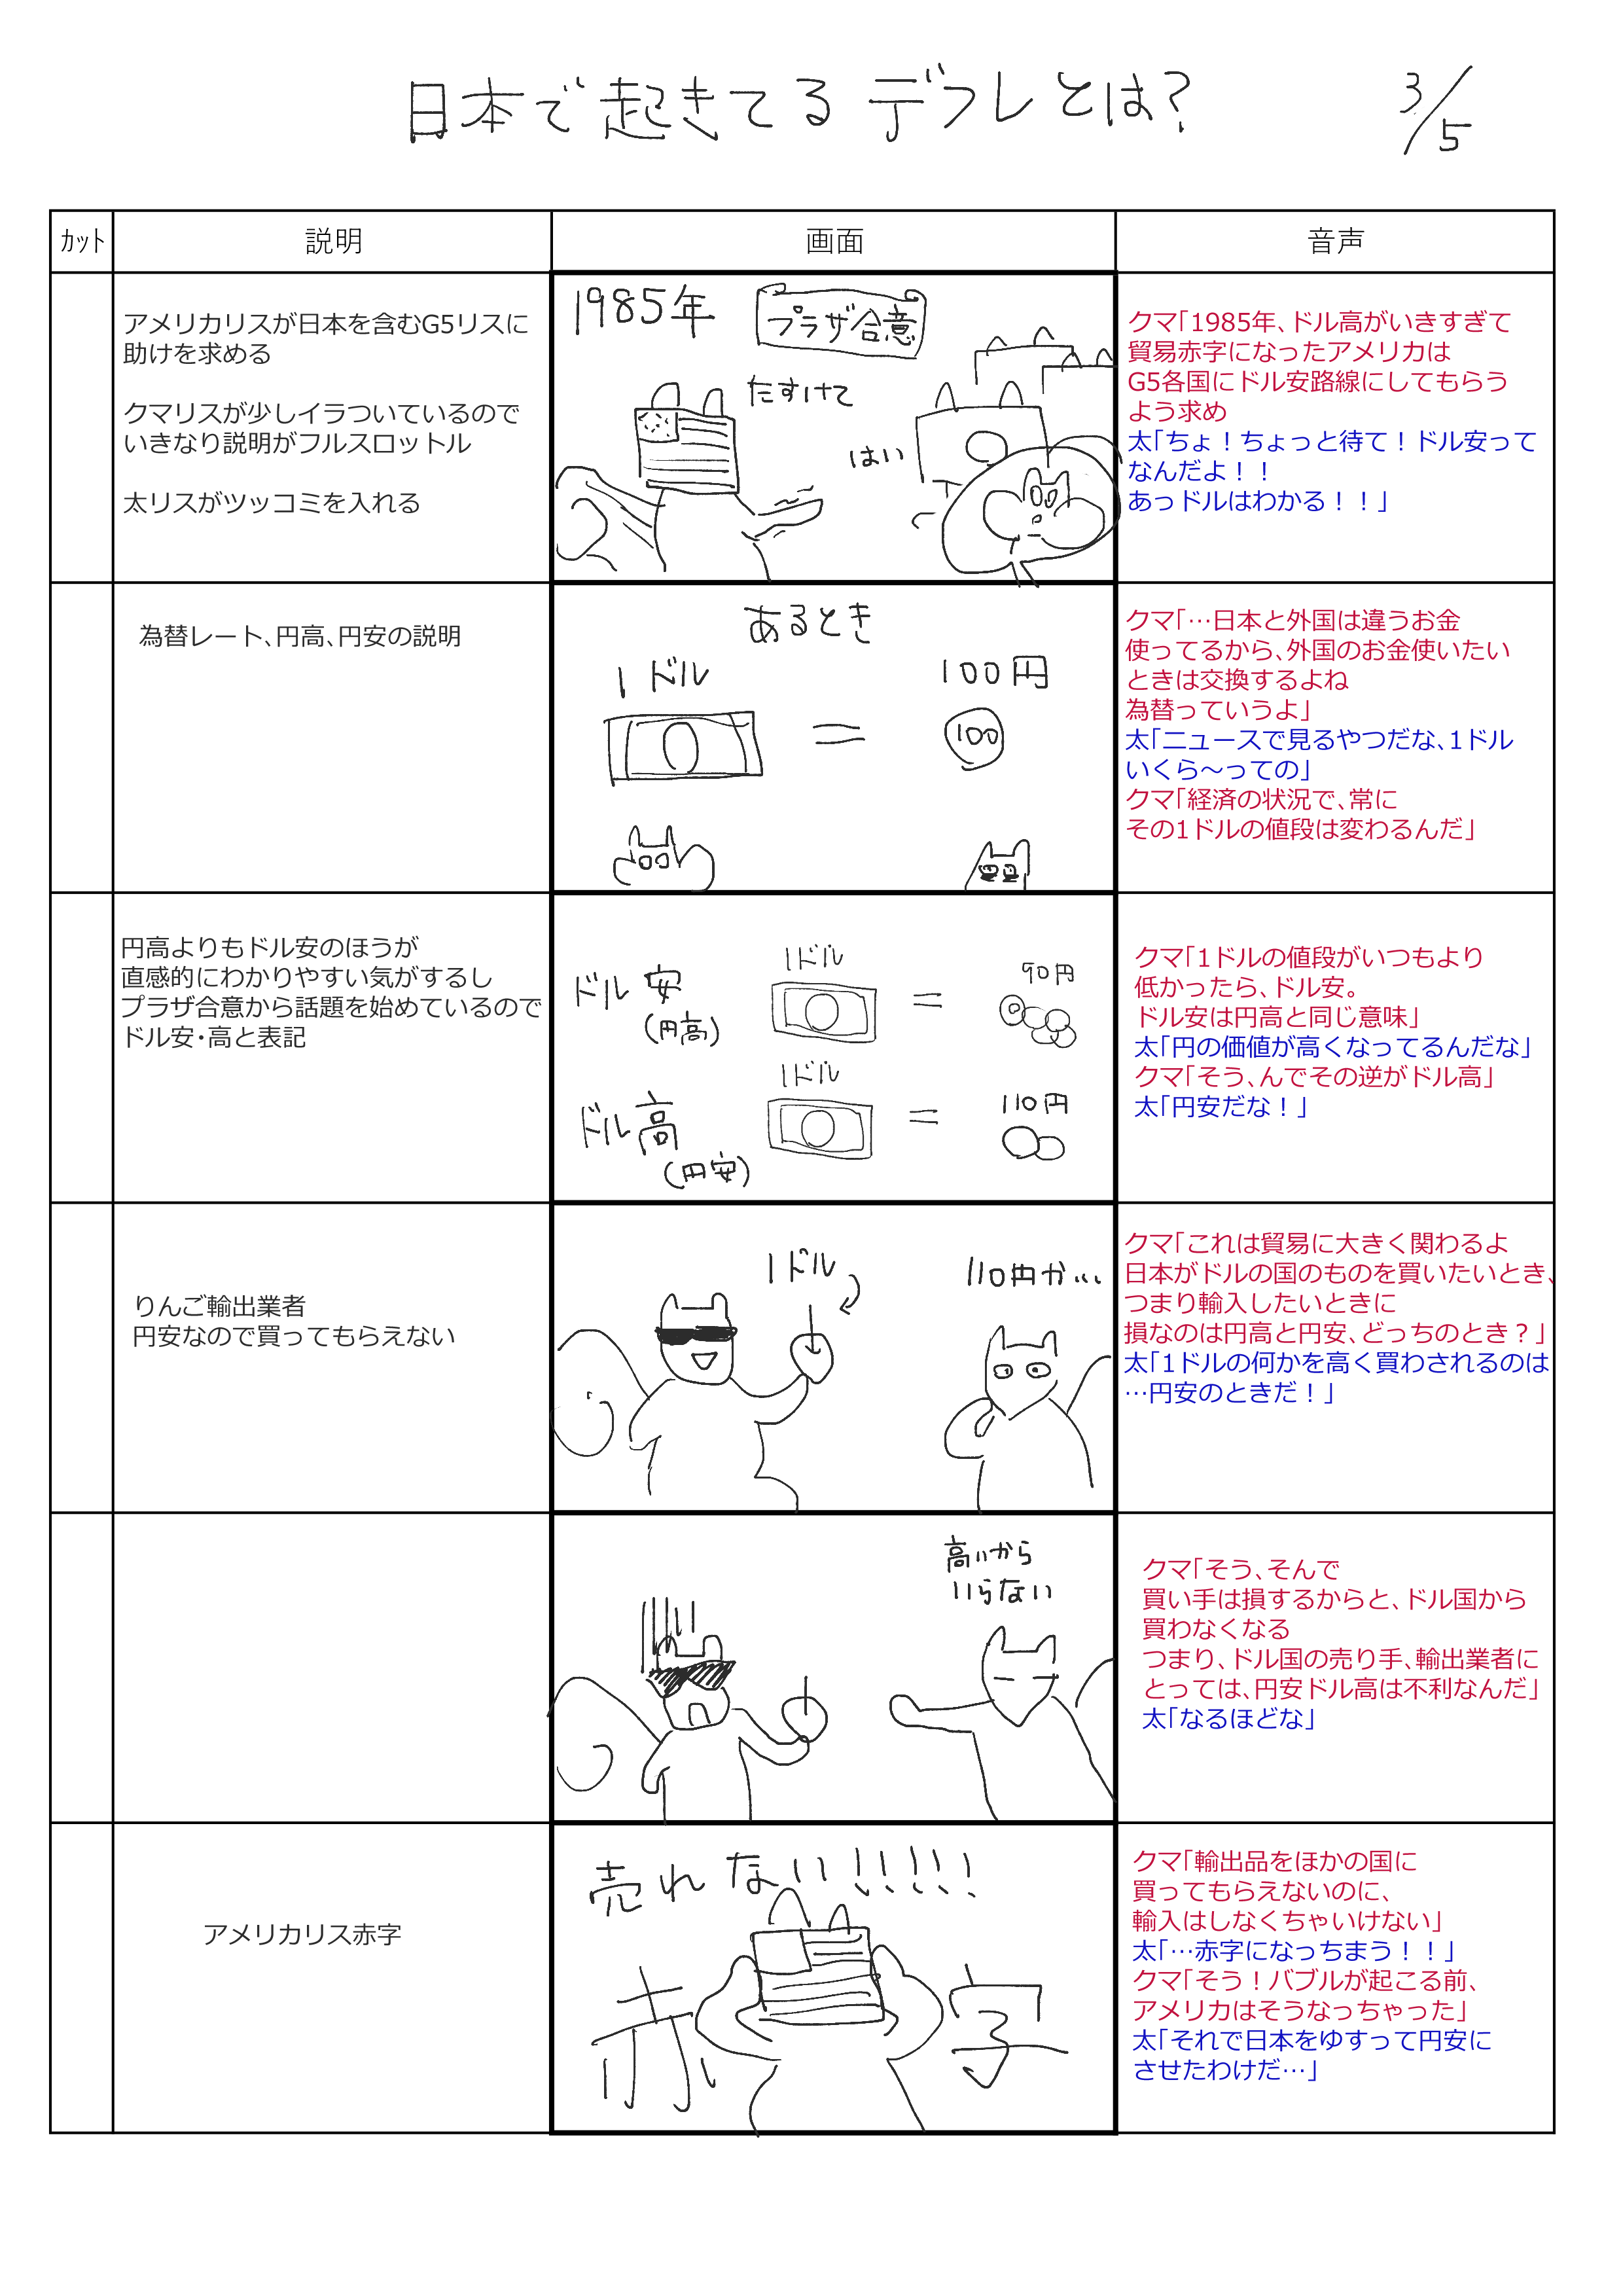 日本で起きてる デフレとは?
3/5
カット
説明
画面
音声
アメリカリスが日本を含むG5リスに
助けを求める
クマリスが少しイラついているので
いきなり説明がフルスロットル
太リスがツッコミを入れる
1985年
プラザ合意
たすけて
はい
クマ「1985年、ドル高がいきすぎて
貿易赤字になったアメリカは
G5各国にドル安路線にしてもらう
よう求め
太「ちょ！ちょっと待て！ドル安って
なんだよ！！
あっドルはわかる！！」
為替レート、円高、円安の説明
あるとき
1ドル
=
100円
100
クマ「…日本と外国は違うお金
使ってるから、外国のお金使いたい
ときは交換するよね
為替っていうよ」
太「ニュースで見るやつだな、1ドル
いくら～っての」
クマ「経済の状況で、常に
その1ドルの値段は変わるんだ」
円高よりもドル安のほうが
直感的にわかりやすい気がするし
プラザ合意から話題を始めているので
ドル安・高と表記
ドル安
(円高)
1ドル
=
90円
ドル高
(円安)
1ドル
=
110円
クマ「1ドルの値段がいつもより
低かったら、ドル安。
ドル安は円高と同じ意味」
太「円の価値が高くなってるんだな」
クマ「そう、んでその逆がドル高」
太「円安だな！」
りんご輸出業者
円安なので買ってもらえない
1ドル
110円か…
クマ「これは貿易に大きく関わるよ
日本がドルの国のものを買いたいとき、
つまり輸入したいときに
損なのは円高と円安、どっちのとき？」
太「1ドルの何かを高く買わされるのは
…円安のときだ！」
高いから
いらない
クマ「そう、そんで
買い手は損するからと、ドル国から
買わなくなる
つまり、ドル国の売り手、輸出業者に
とっては、円安ドル高は不利なんだ」
太「なるほどな」
アメリカリス赤字
売れない!!!!!
赤字
クマ「輸出品をほかの国に
買ってもらえないのに、
輸入はしなくちゃいけない」
太「…赤字になっちまう！！」
クマ「そう！バブルが起こる前、
アメリカはそうなっちゃった」
太「それで日本をゆすって円安に
させたわけだ…」